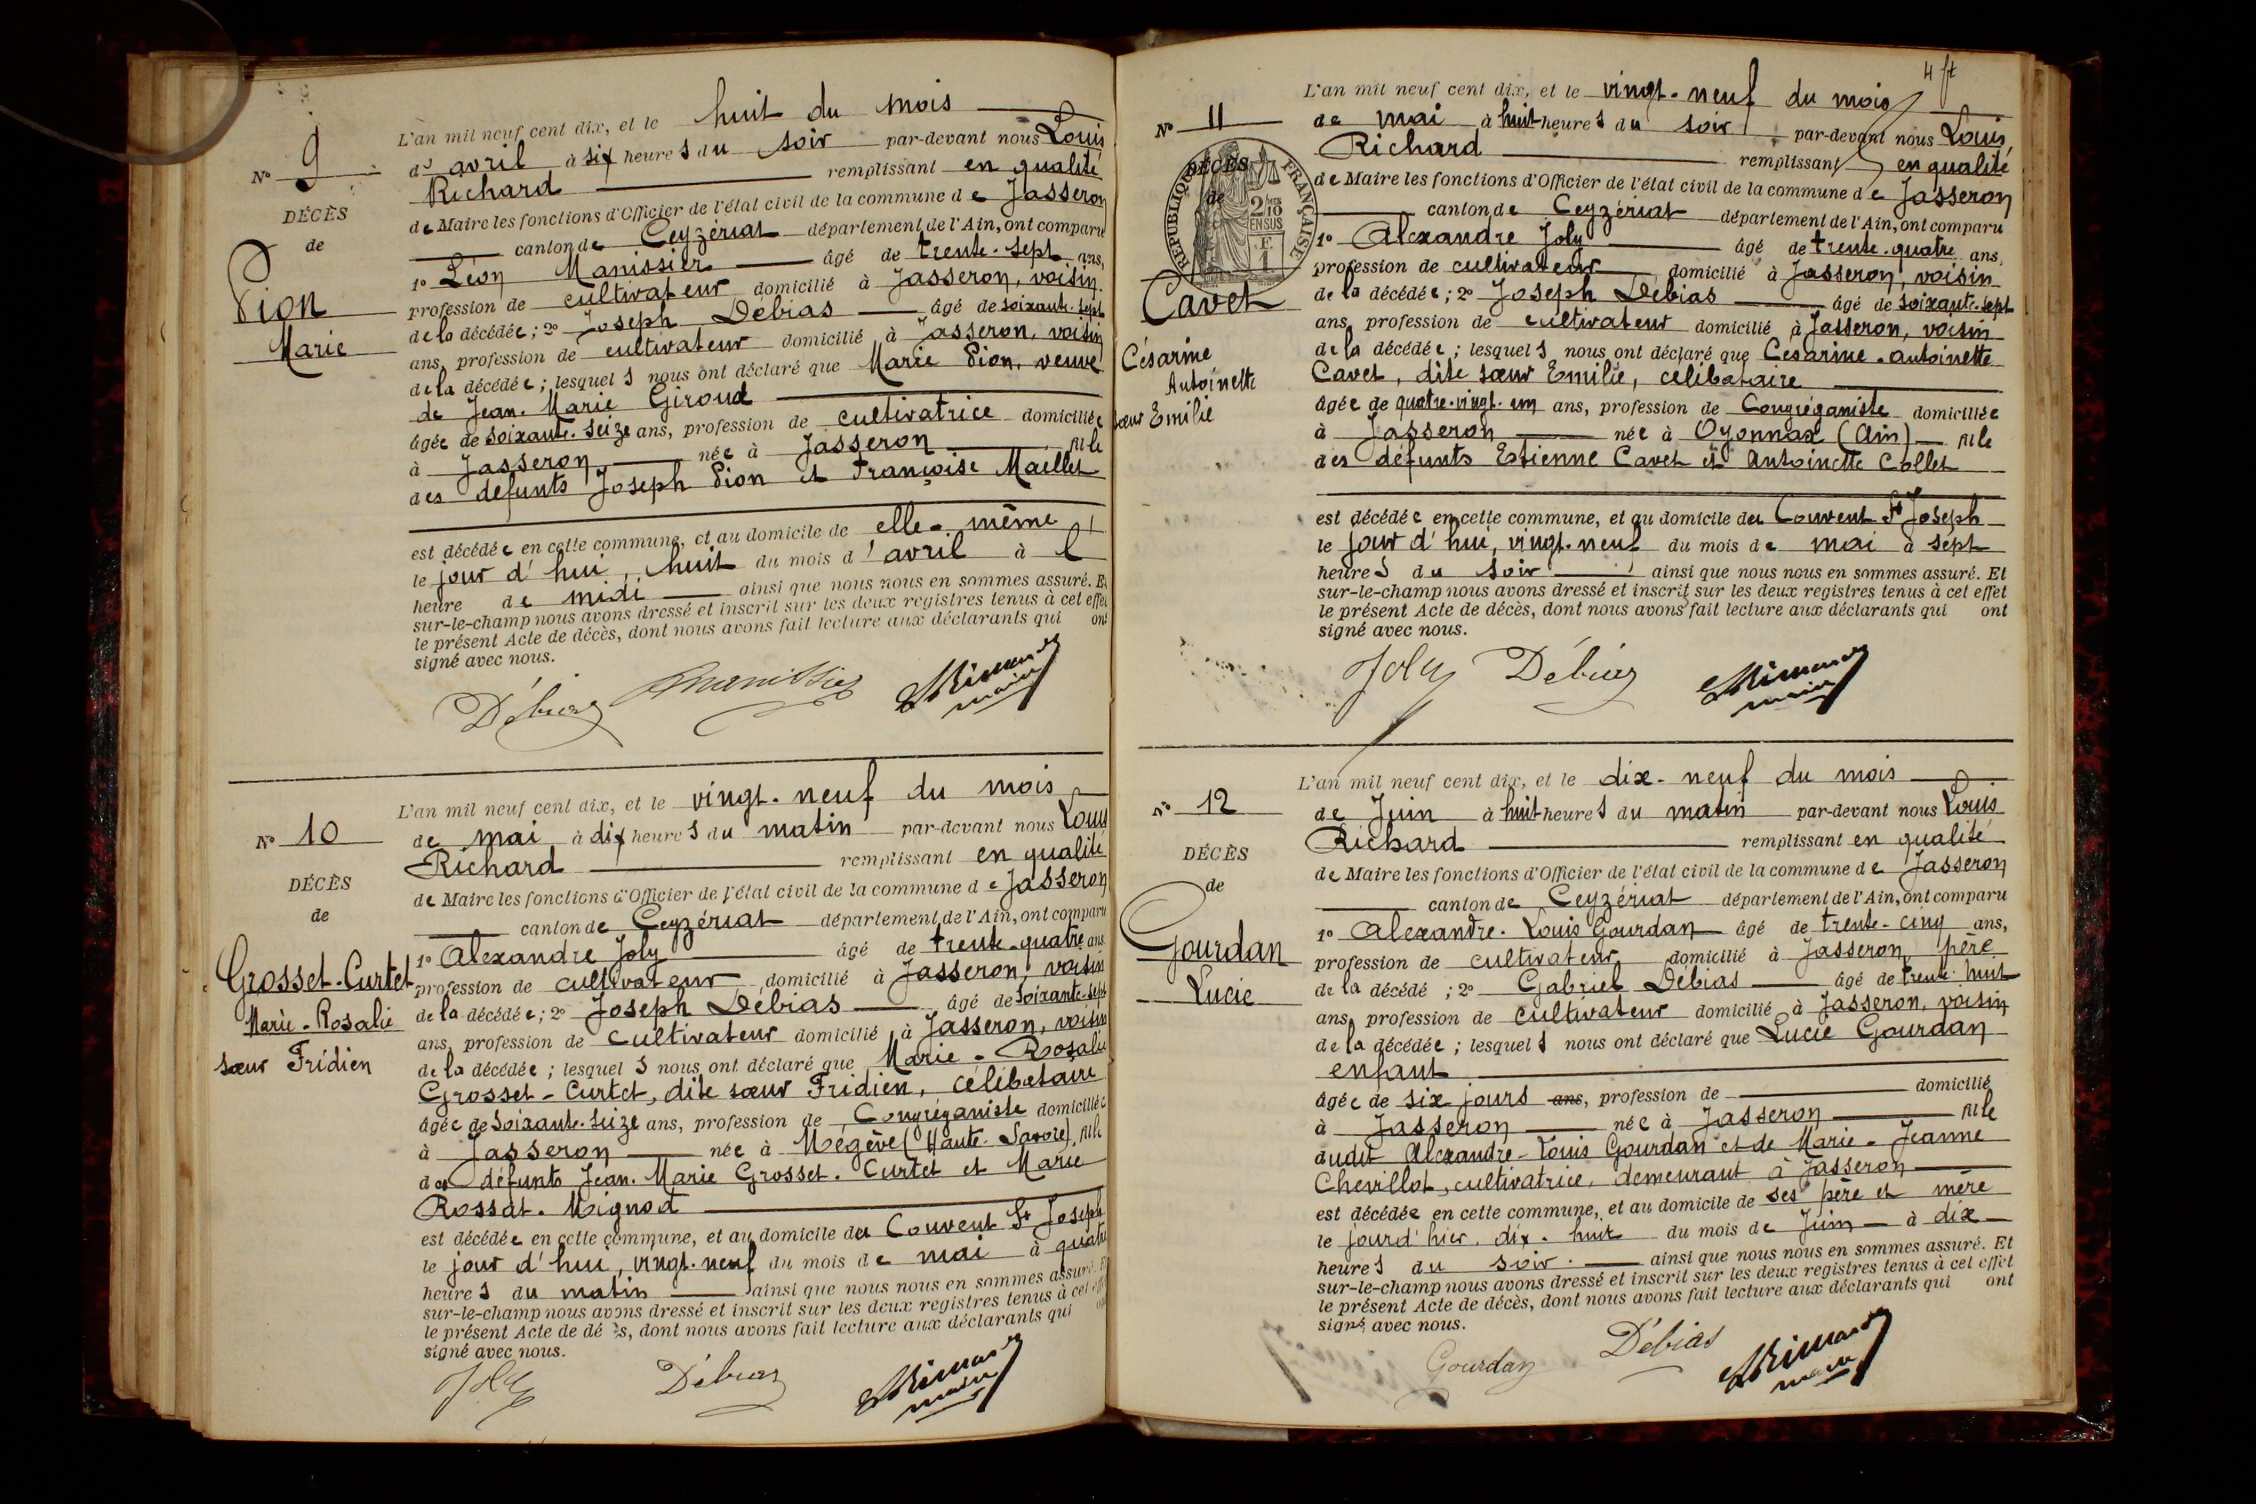 Nº 9
DÉCÈS
de
Pion
Marie
L'an mil neuf cent dix, et le huit du mois
d' avril à six heures du soir par-devant nous Louis
Richard remplissant en qualité
de Maire les fonctions d'Officier de l'état civil de la commune de Jasseron
canton de Ceyzériat département de l'Ain, ont comparu
1º Léon Manissier âgé de trente-sept ans,
profession de cultivateur domicilié à Jasseron, voisin
de la décédée ; 2º Joseph Débias âgé de soixante-sept
ans, profession de cultivateur domicilié à Jasseron, voisin
de la décédée ; lesquels nous ont déclaré que Marie Pion, veuve
de Jean-Marie Giroud
âgée de soixante-seize ans, profession de cultivatrice domiciliée
à Jasseron née à Jasseron fille
des défunts Joseph Pion et Françoise Maillet
est décédée en cette commune, et au domicile de elle-même
le jour d'hui, huit du mois d'avril à l
heure de midi ainsi que nous nous en sommes assuré. Et
sur-le-champ nous avons dressé et inscrit sur les deux registres tenus à cet effet
le présent Acte de décès, dont nous avons fait lecture aux déclarants qui ont
signé avec nous.
Débias Manissier
maire
Nº 10
DÉCÈS
de
Grosset-Curtet
Marie-Rosalie
sœur Fridien
L'an mil neuf cent dix, et le vingt-neuf du mois
de mai à dix heures du matin par-devant nous Louis
Richard remplissant en qualité
de Maire les fonctions d'Officier de l'état civil de la commune de Jasseron
canton de Ceyzériat département de l'Ain, ont comparu
1º Alexandre Joly âgé de trente-quatre ans
profession de cultivateur domicilié à Jasseron, voisin
de la décédée ; 2º Joseph Débias âgé de soixante-sept
ans, profession de cultivateur domicilié à Jasseron, voisin
de la décédée ; lesquels nous ont déclaré que Marie-Rosalie
Grosset-Curtet, dite sœur Fridien, célibataire
âgée de soixante-seize ans, profession de Congréganiste domiciliée
à Jasseron née à Mégève (Haute-Savoie) fille
des défunts Jean-Marie Grosset-Curtet et Marie
Rossat-Mignod
est décédée en cette commune, et au domicile du Couvent St Joseph
le jour d'hui, vingt-neuf du mois de mai à quatre
heures du matin ainsi que nous nous en sommes assuré. Et
sur-le-champ nous avons dressé et inscrit sur les deux registres tenus à cet effet
le présent Acte de décès, dont nous avons fait lecture aux déclarants qui ont
signé avec nous.
Joly Débias
maire
4 ft
Nº 11
DÉCÈS
de
RÉPUBLIQUE FRANÇAISE
2/10 EN SUS
F
1
Cavet
Césarine
Antoinette
sœur Emilie
L'an mil neuf cent dix, et le vingt-neuf du mois
de mai à huit heures du soir par-devant nous Louis
Richard remplissant en qualité
de Maire les fonctions d'Officier de l'état civil de la commune de Jasseron
canton de Ceyzériat département de l'Ain, ont comparu
1º Alexandre Joly âgé de trente-quatre ans,
profession de cultivateur domicilié à Jasseron, voisin
de la décédée ; 2º Joseph Débias âgé de soixante-sept
ans, profession de cultivateur domicilié à Jasseron, voisin
de la décédée ; lesquels nous ont déclaré que Césarine-Antoinette
Cavet, dite sœur Emilie, célibataire
âgée de quatre-vingt-un ans, profession de Congréganiste domiciliée
à Jasseron née à Oyonnax (Ain) fille
des défunts Etienne Cavet et Antoinette Collet
est décédée en cette commune, et au domicile du Couvent St Joseph
le jour d'hui, vingt-neuf du mois de mai à sept
heures du soir ainsi que nous nous en sommes assuré. Et
sur-le-champ nous avons dressé et inscrit sur les deux registres tenus à cet effet
le présent Acte de décès, dont nous avons fait lecture aux déclarants qui ont
signé avec nous.
Joly Débias
maire
Nº 12
DÉCÈS
de
Gourdan
Lucie
L'an mil neuf cent dix, et le dix-neuf du mois
de Juin à huit heures du matin par-devant nous Louis
Richard remplissant en qualité
de Maire les fonctions d'Officier de l'état civil de la commune de Jasseron
canton de Ceyzériat département de l'Ain, ont comparu
1º Alexandre-Louis Gourdan âgé de trente-cinq ans,
profession de cultivateur domicilié à Jasseron père
de la décédé ; 2º Gabriel Débias âgé de trente-huit
ans, profession de cultivateur domicilié à Jasseron, voisin
de la décédée ; lesquels nous ont déclaré que Lucie Gourdan
enfant
âgée de six jours ans, profession de domicilié
à Jasseron née à Jasseron fille
dudit Alexandre-Louis Gourdan et de Marie-Jeanne
Chevillot, cultivatrice, demeurant à Jasseron
est décédée en cette commune, et au domicile de ses père et mère
le jourd'hier, dix-huit du mois de Juin à dix
heures du soir ainsi que nous nous en sommes assuré. Et
sur-le-champ nous avons dressé et inscrit sur les deux registres tenus à cet effet
le présent Acte de décès, dont nous avons fait lecture aux déclarants qui ont
signé avec nous.
Gourdan Débias
maire